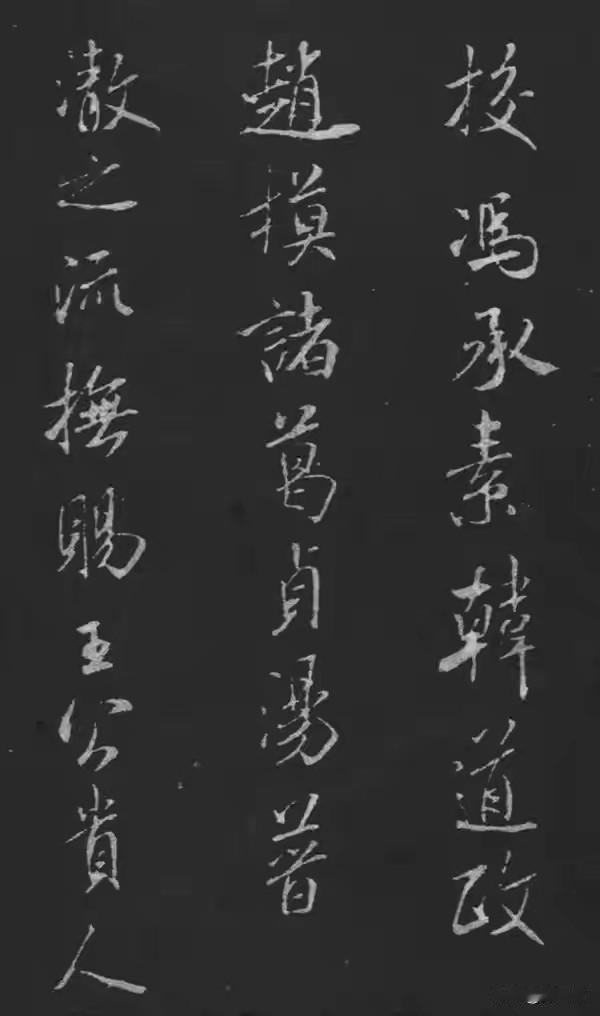 挍馮承素韓道政
趙模諸葛貞湯普
澈之流撫賜王公貴人